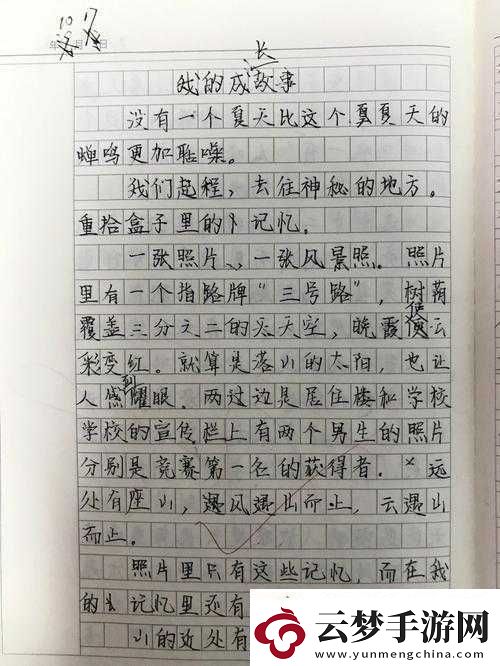 10 17
年 月 日
我的成长故事
没有一个夏天比这个夏天的
蝉鸣更加聒噪。
我们起程，去往神秘的地方。
重拾盒子里的记忆。
一张照片，一张风景照。照片
里有一个指路牌“三号路”，树荫
覆盖三分之二的天空，晚霞使云
彩变红。就算是落山的太阳，也让
人感到耀眼。两边是居住楼和学校
学校的宣传栏上有两个男生的照片
分别是竞赛第一名的获得者。远
处有座山，遇风遇山而止，云遇山
而止。
照片里只有这些记忆，而在我
的记忆里还有
山的近处有
云梦手游网
www.yunmengchina.com